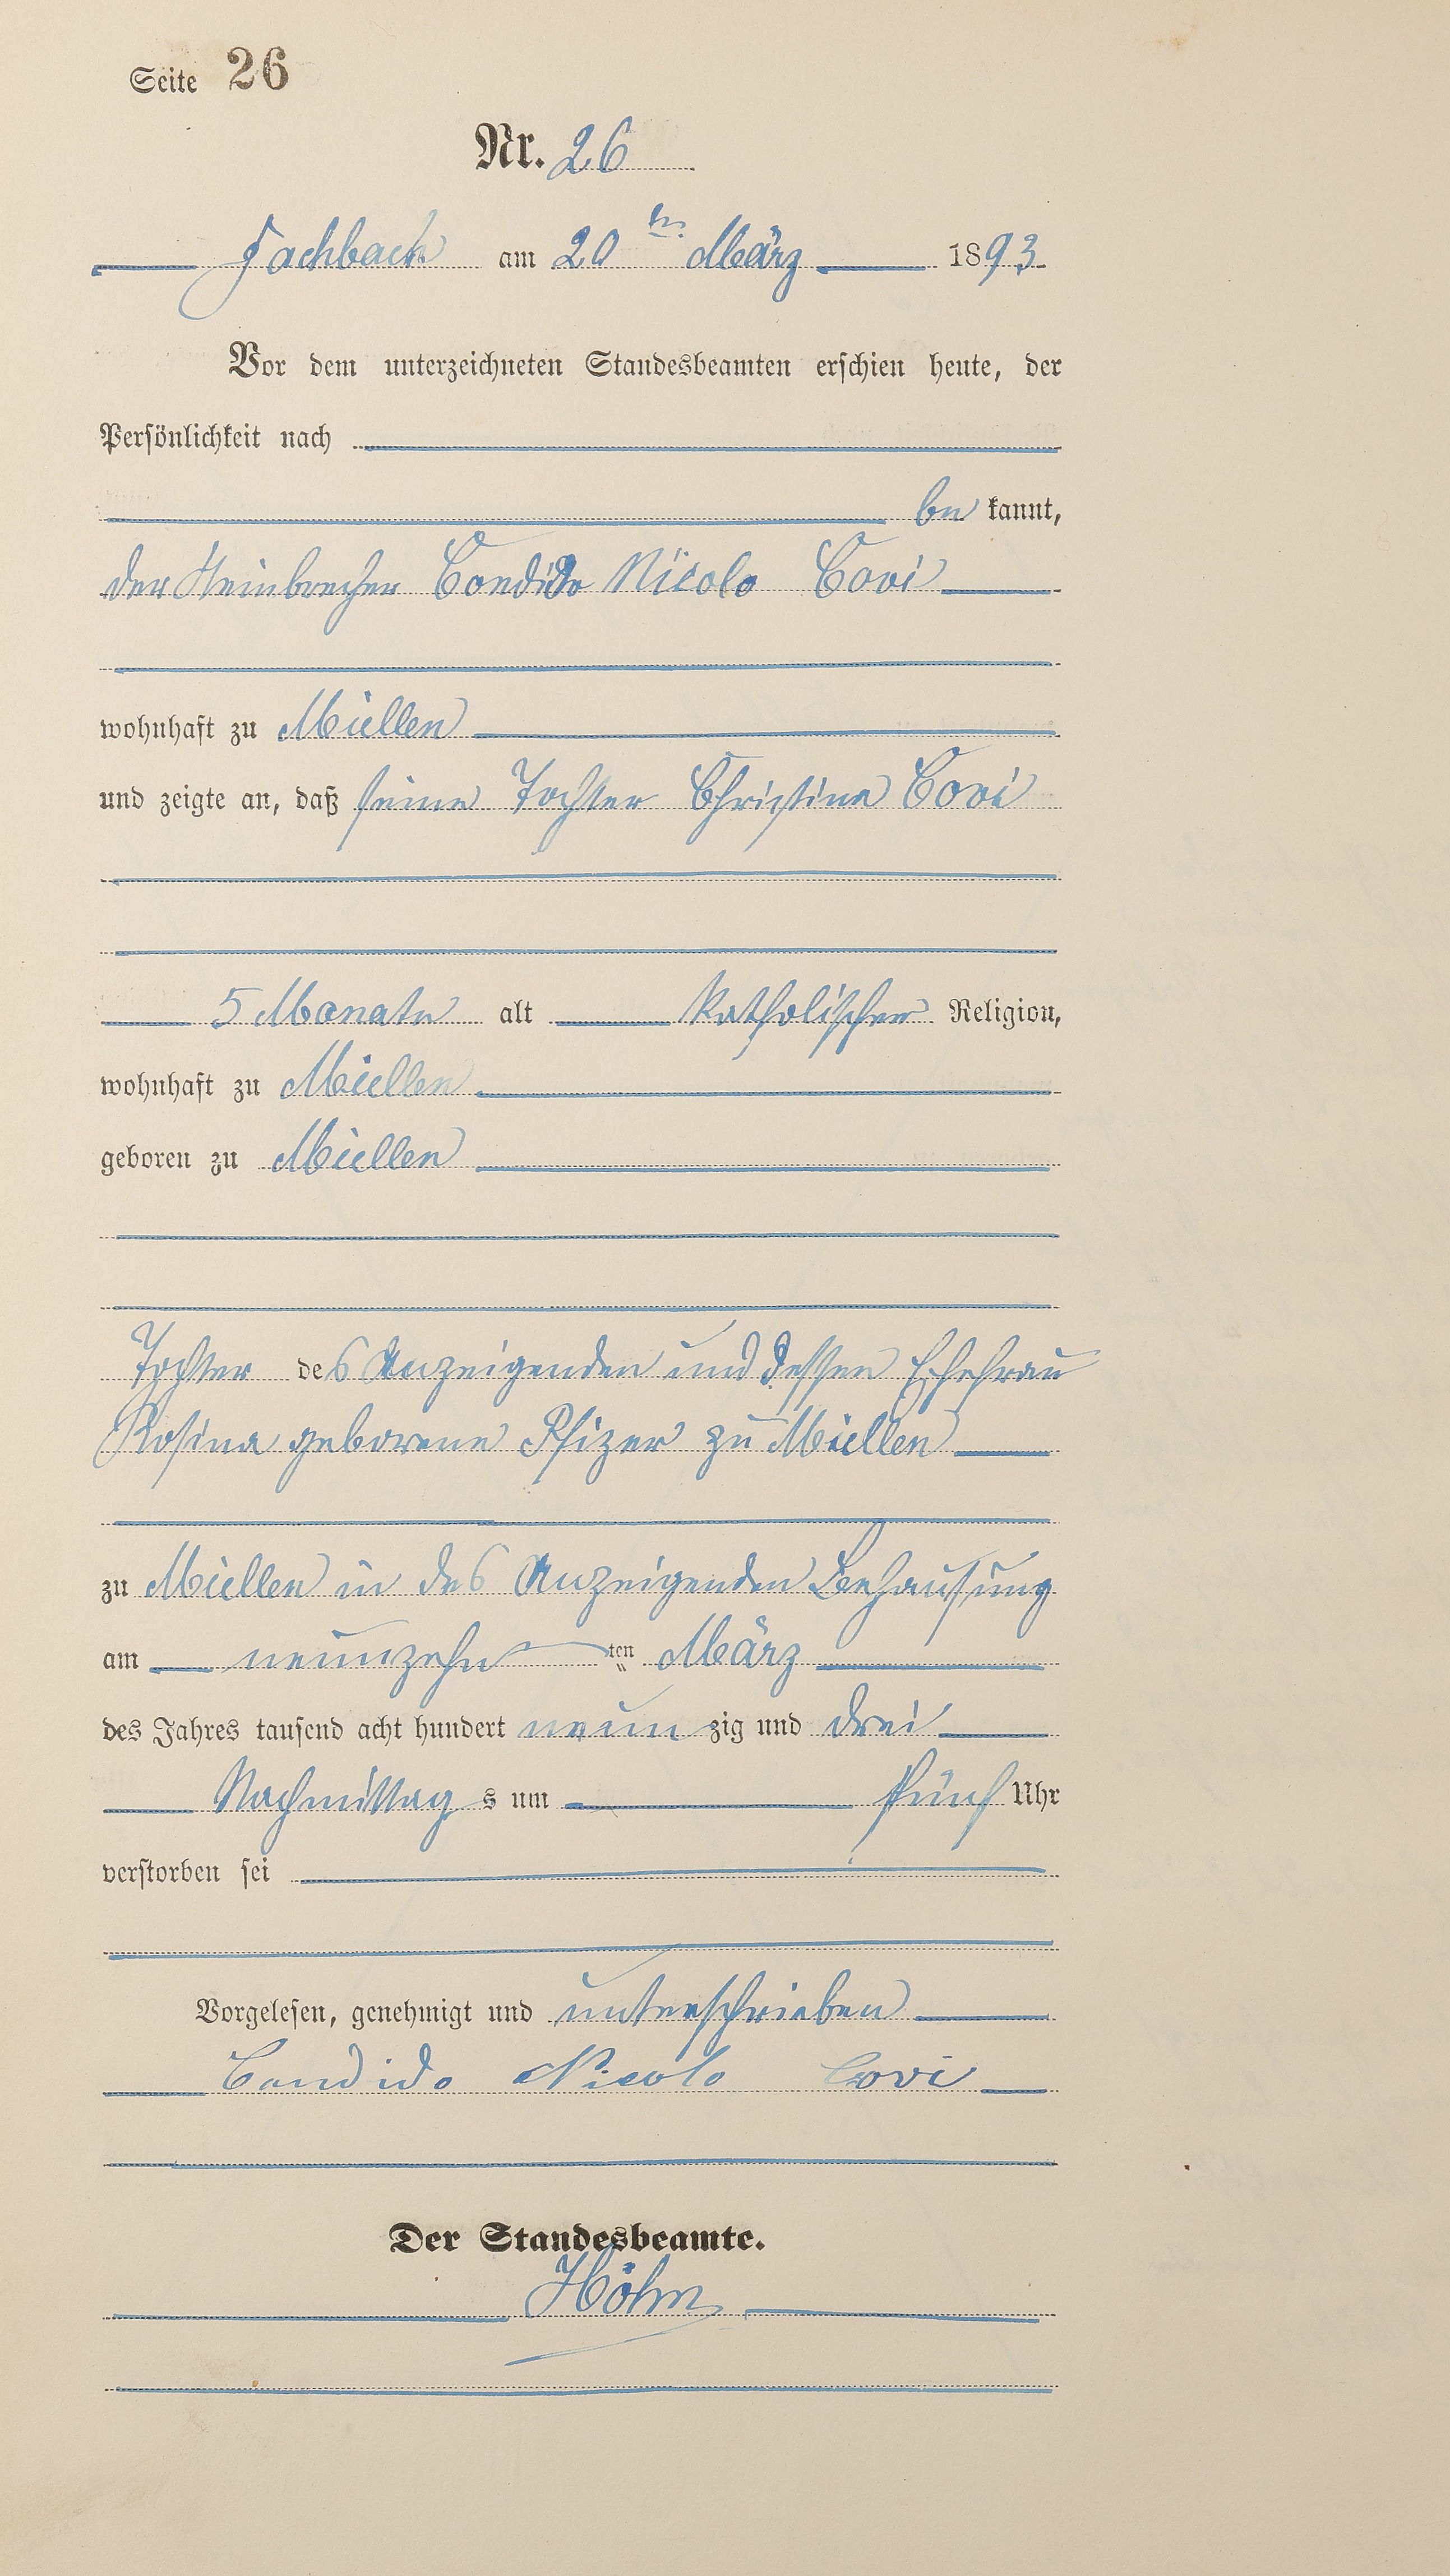 Seite 26
Nr. 26
Fachbach am 20ten März 1893
Vor dem unterzeichneten Standesbeamten erschien heute, der
Persönlichkeit nach
be kannt,
der Steinbrecher Condido Nicolo Covi
wohnhaft zu Miellen
und zeigte an, daß seine Tochter Christina Covi
5 Monate alt katholischer Religion,
wohnhaft zu Miellen
geboren zu Miellen
Tochter des Anzeigenden und dessen Ehefrau
Rosina geborene Pfizer zu Miellen
zu Miellen in des Anzeigenden Behausung
am neunzehn ten März
des Jahres tausend acht hundert neun zig und drei
Nachmittag s um fünf Uhr
verstorben sei
Vorgelesen, genehmigt und unterschrieben
Candido Nicolo Covi
Der Standesbeamte.
Höhn